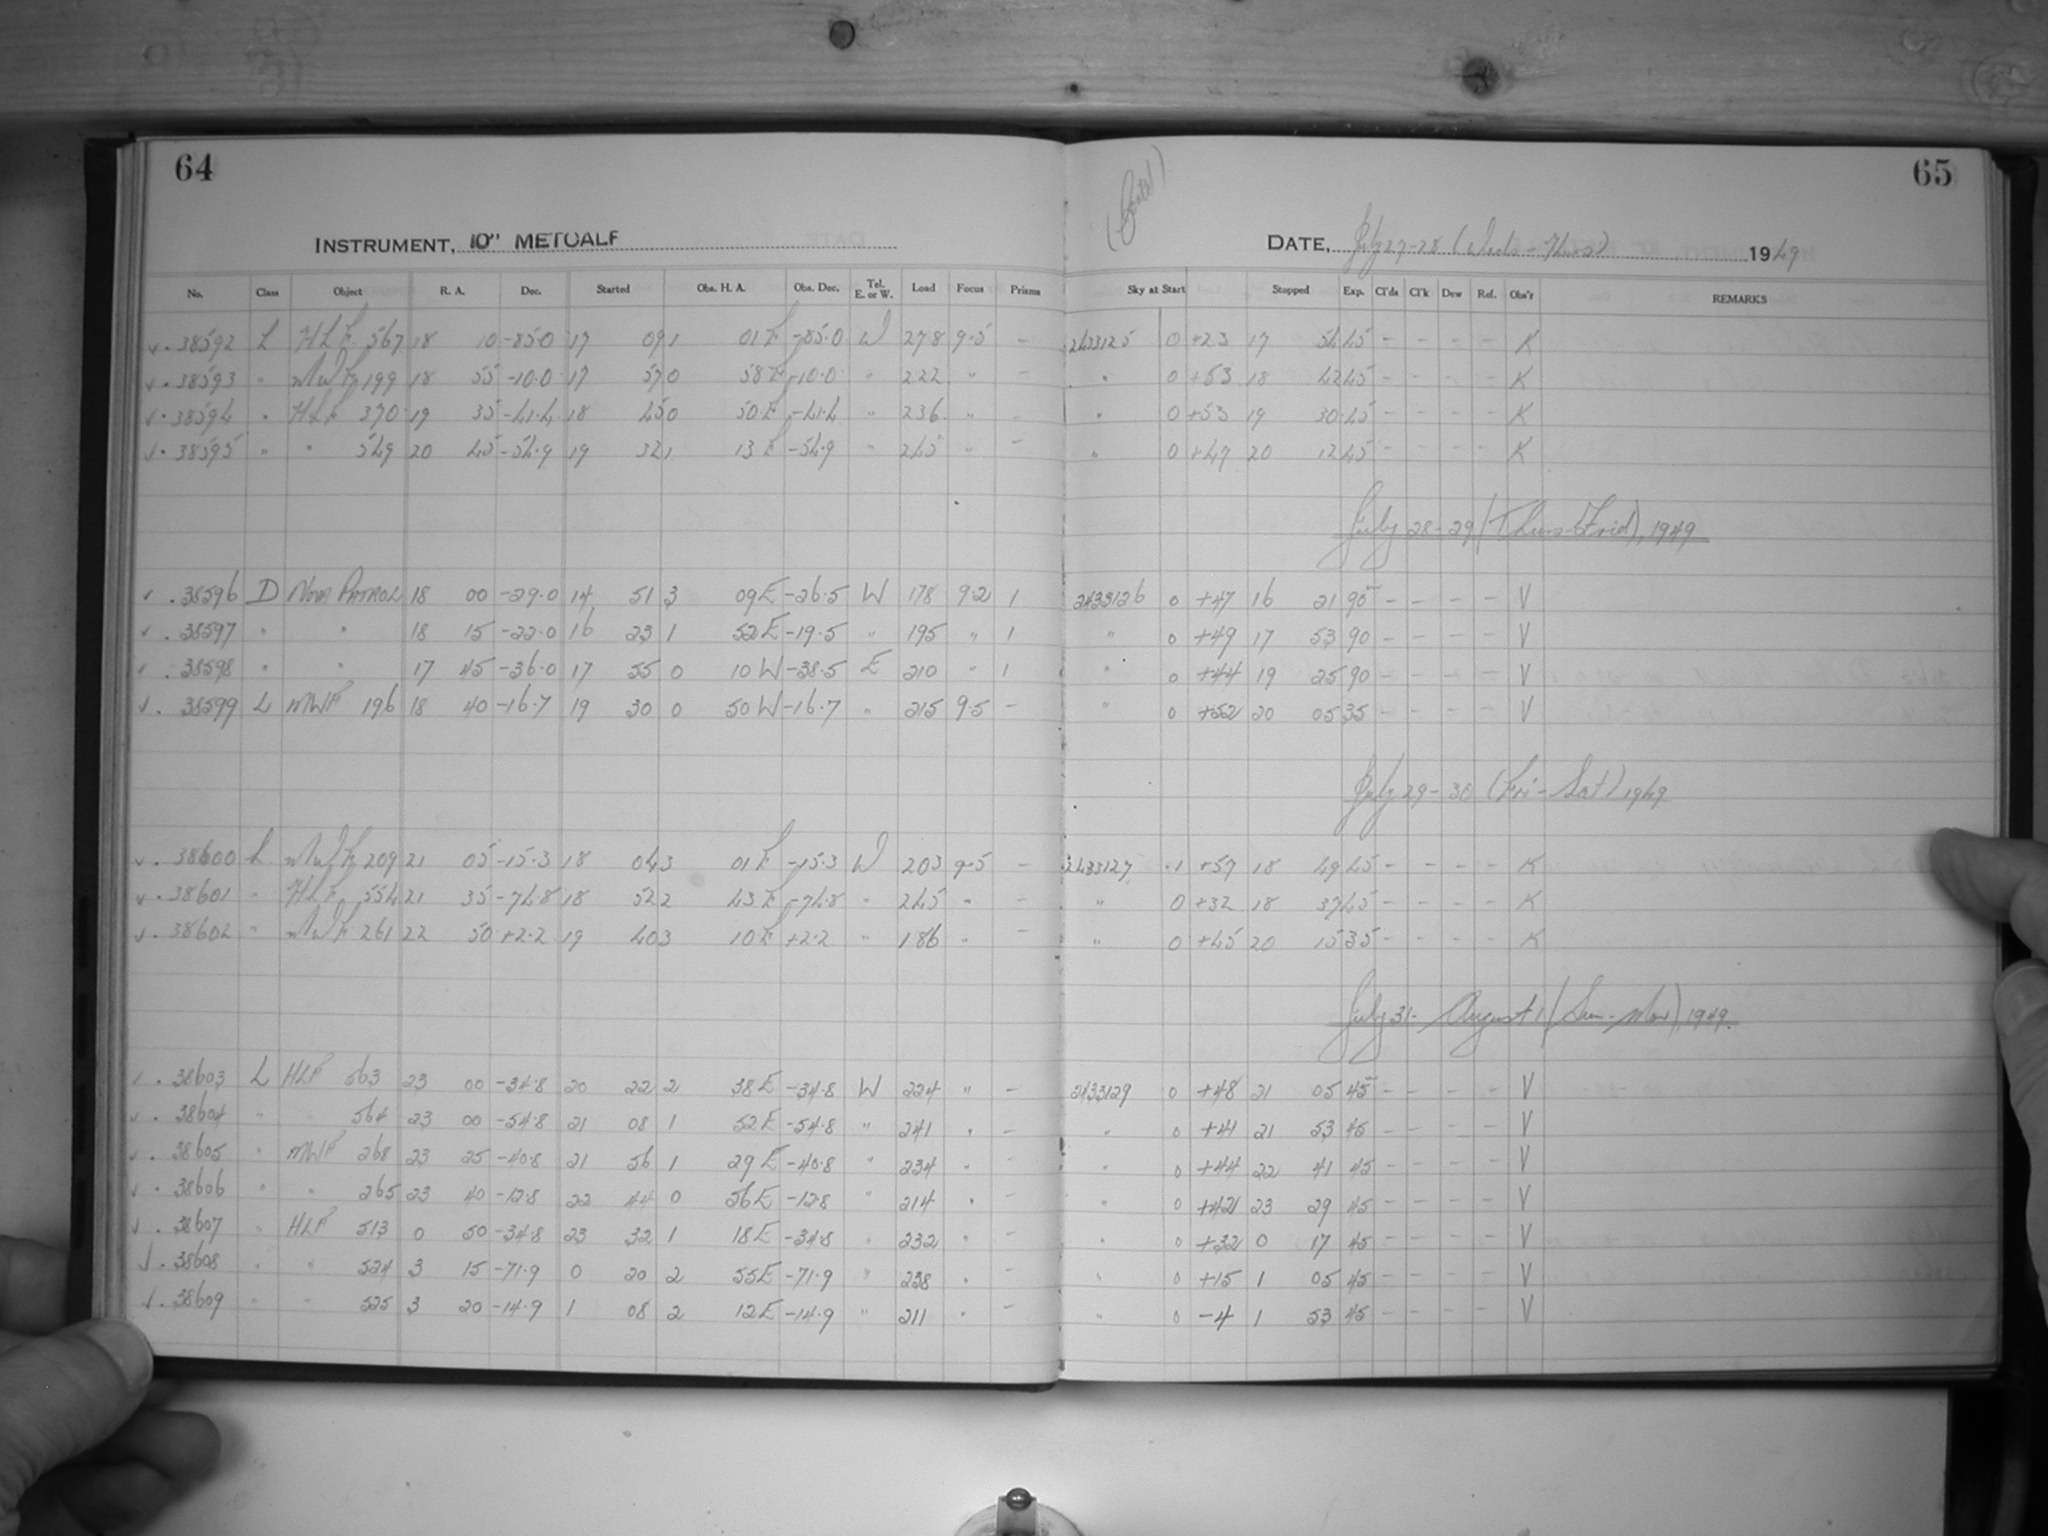 64
65
(Contd)
INSTRUMENT, 10" METCALF
DATE, July 27-28 (Weds-Thurs) 1949
No. Class Object R. A. Dec. Started Obs. H. A. Obs. Dec. Tel. E. or W. Load Focus Prisms Sky at Start Stopped Exp. Cl'ds Cl'k Dew Ref. Obs'r REMARKS
✓ . 38592 L HLF 567 18 10 -85.0 17 09 1 01 E -85.0 W 278 9.5 - 2433125 0 +23 17 54 45 - - - - K
✓ . 38593 " MWF 199 18 55 -10.0 17 57 0 58 E -10.0 " 222 " - " 0 +53 18 42 45 - - - - K
✓ . 38594 " HLF 370 19 35 -41.4 18 45 0 50 E -41.4 " 236 " - " 0 +53 19 30 45 - - - - K
✓ . 38595 " " 549 20 45 -54.9 19 32 1 13 E -54.9 " 245 " - " 0 +47 20 12 45 - - - - K
July 28-29 (Thurs-Frid), 1949
✓ . 38596 D NOVA PATROL 18 00 -29.0 14 51 3 09 E -26.5 W 178 9.2 1 2433126 0 +47 16 21 90 - - - - V
✓ . 38597 " " 18 15 -22.0 16 23 1 52 E -19.5 " 195 " 1 " 0 +49 17 53 90 - - - - V
✓ . 38598 " " 17 45 -36.0 17 55 0 10 W -38.5 E 210 " 1 " 0 +44 19 25 90 - - - - V
✓ . 38599 L MWF 196 18 40 -16.7 19 30 0 50 W -16.7 " 215 9.5 - " 0 +52 20 05 35 - - - - V
July 29-30 (Fri-Sat) 1949
✓ . 38600 L MWF 209 21 05 -15.3 18 04 3 01 E -15.3 W 203 9.5 - 2433127 .1 +57 18 49 45 - - - - K
✓ . 38601 " HLF 554 21 35 -74.8 18 52 2 43 E -74.8 " 245 " - " 0 +32 18 37 45 - - - - K
✓ . 38602 " MWF 261 22 50 +2.2 19 40 3 10 E +2.2 " 186 " - " 0 +45 20 15 35 - - - - K
July 31- August 1 (Sun-Mon), 1949.
✓ . 38603 L HLF 563 23 00 -34.8 20 22 2 38 E -34.8 W 224 " - 2433129 0 +48 21 05 45 - - - - V
✓ . 38604 " " 564 23 00 -54.8 21 08 1 52 E -54.8 " 241 " - " 0 +41 21 53 45 - - - - V
✓ . 38605 " MWF 268 23 25 -40.8 21 56 1 29 E -40.8 " 234 " - " 0 +44 22 41 45 - - - - V
✓ . 38606 " " 265 23 40 -12.8 22 44 0 56 E -12.8 " 214 " - " 0 +42 23 29 45 - - - - V
✓ . 38607 " HLF 513 0 50 -34.8 23 32 1 18 E -34.8 " 232 " - " 0 +32 0 17 45 - - - - V
✓ . 38608 " " 524 3 15 -71.9 0 20 2 55 E -71.9 " 238 " - " 0 +15 1 05 45 - - - - V
✓ . 38609 " " 525 3 20 -14.9 1 08 2 12 E -14.9 " 211 " - " 0 -4 1 53 45 - - - - V